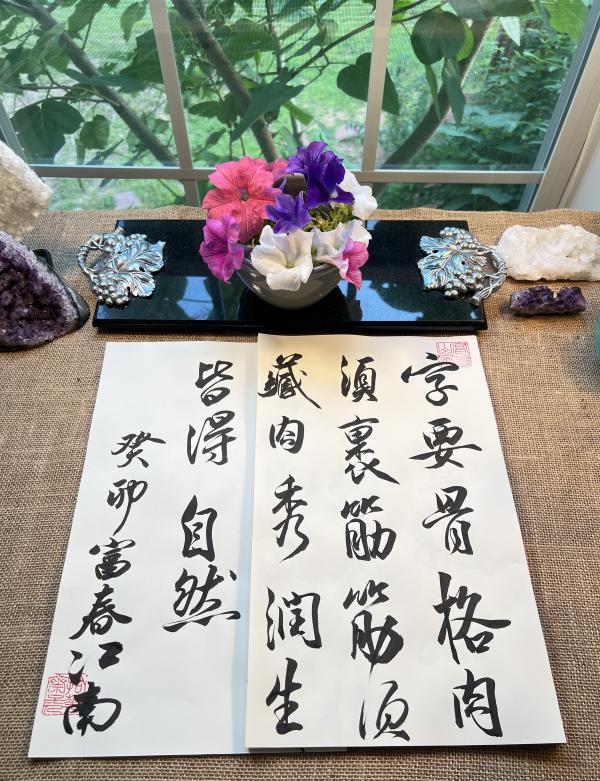 字要骨格肉
须裏筋筋须
藏肉秀润生
皆得自然
癸卯富春江南